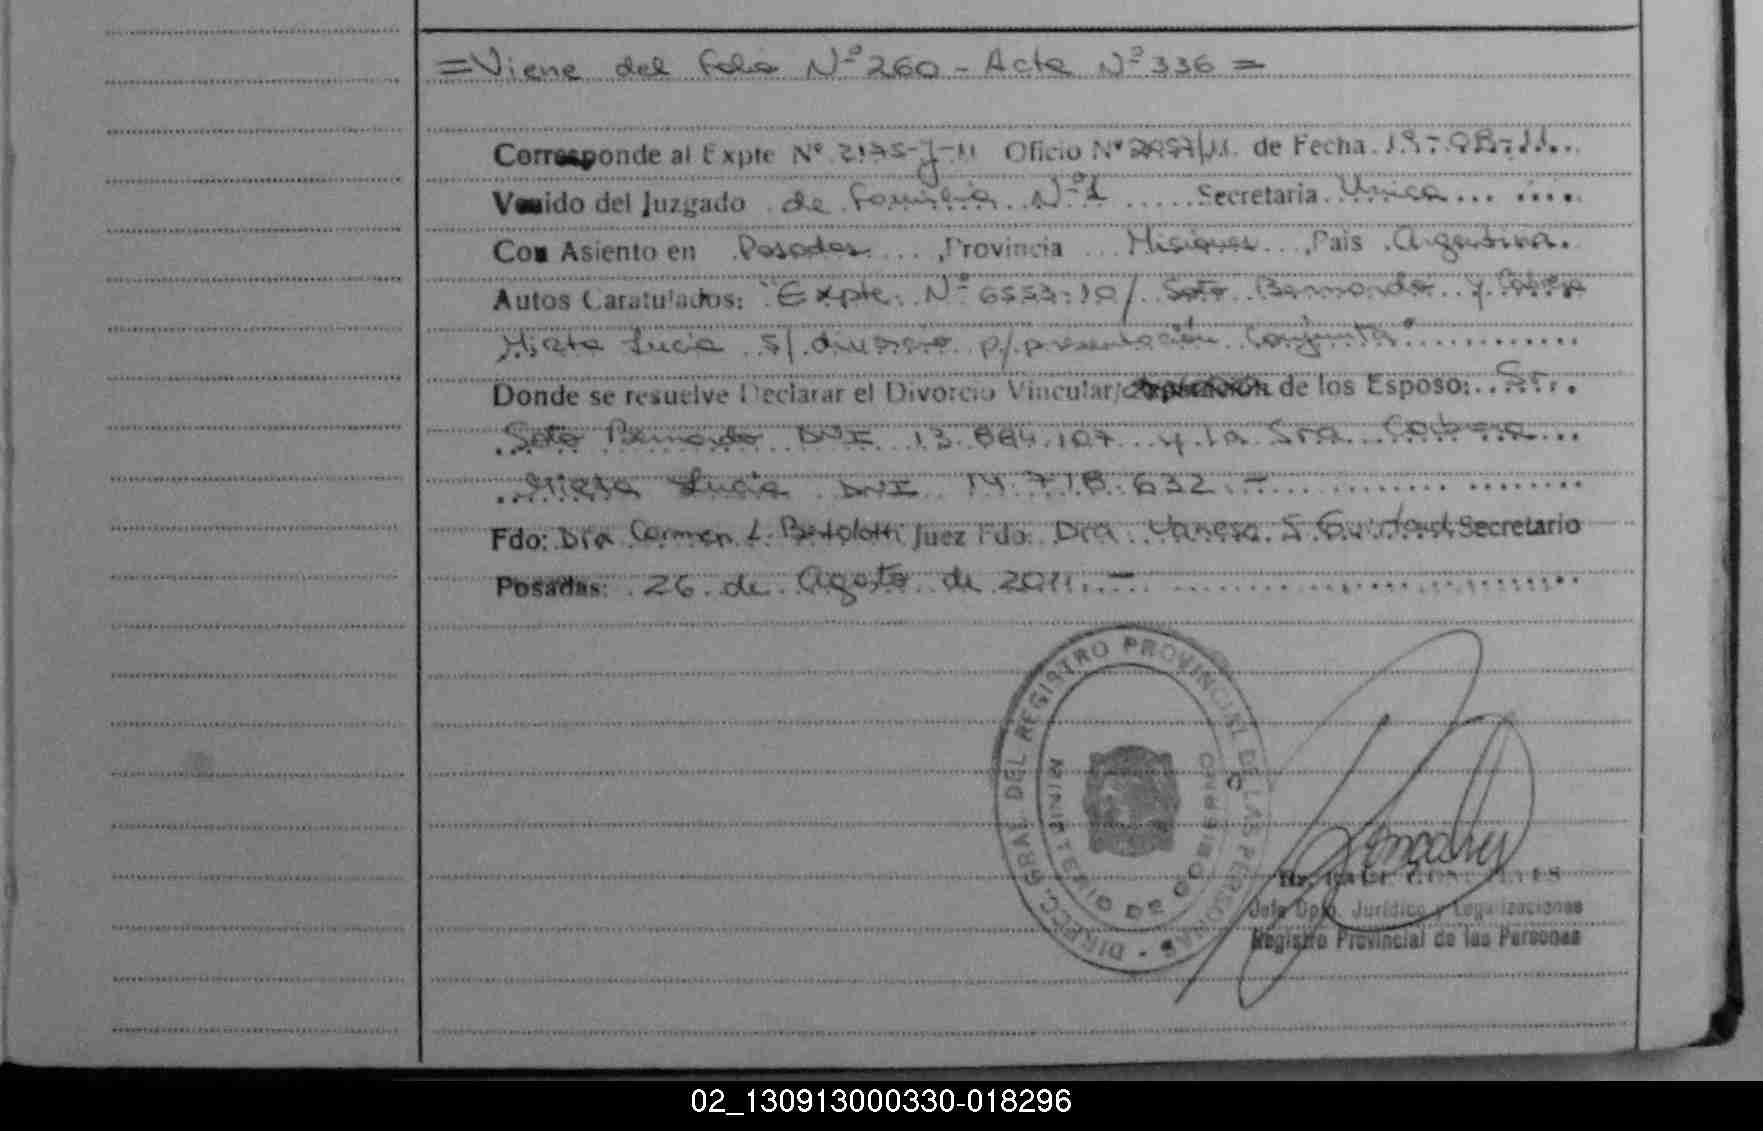 =Viene del folio Nº 260 - Acta Nº 336=
Corresponde al Expte Nº 2175-J-11 Oficio Nº /11. de Fecha 19-08-11
Venido del Juzgado de Familia Nº 1 Secretaria Unica
Con Asiento en Posadas, Provincia Misiones, Pais Argentina.
Autos Caratulados: "Expte. Nº 6553-10/ Soto Bernardo y
Mirta Lucia s/ divorcio p/ presentación Conjunta"
Donde se resuelve Declarar el Divorcio Vincular/ de los Esposo: Sr.
Soto Bernardo DNI 13.884.107 y la Sra
Mirta Lucia DNI 14.718.632.-
Fdo: Dra Carmen L. Bertolotti Juez Fdo: Dra. Vanesa S. Secretario
Posadas: 26 de Agosto de 2011.-
DIRECC. GRAL. DEL REGISTRO PROVINCIAL DE LAS PERSONAS
MINISTERIO DE GOBIERNO
Jefe Dpto. Jurídico y Legalizaciones
Registro Provincial de las Personas
02_130913000330-018296